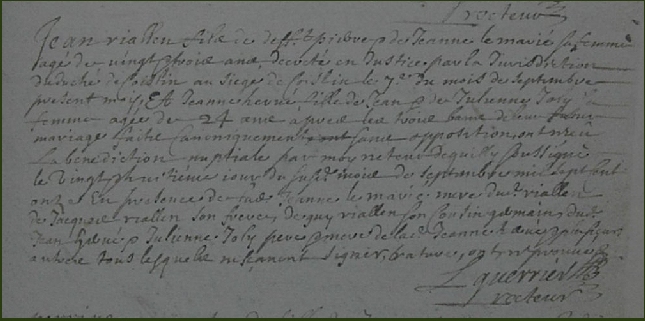 recteur
Jean riallen fils de deff.t pierre & de Jeanne le mavic sa femme
agé de vingt trois ans, decreté en Justice par la Jurisdiction
du duché de Coislin au siege de Coislin le 7.e du mois de septembre
present mois, Et Jeanne hervé fille de Jean & de Julienne Joly sa
femme agée de 24 ans apres les trois bans de leur futur
mariage faits canoniquement sans opposition, ont receu
la benediction nuptiale par moy recteur de quilly soussigné
le vingt huitieme jour du susd. mois de septembre mil sept cent
onze En presence de lad. Jeanne le mavic mere dud. riallen
de Jacques riallen son frere, de guy riallen son cousin germain, dud.
Jean hervé & Julienne Joly pere & mere de lad. Jeanne hervé & plusieurs
autres tous lesquels ne sçavent signer,
L guerrier
recteur